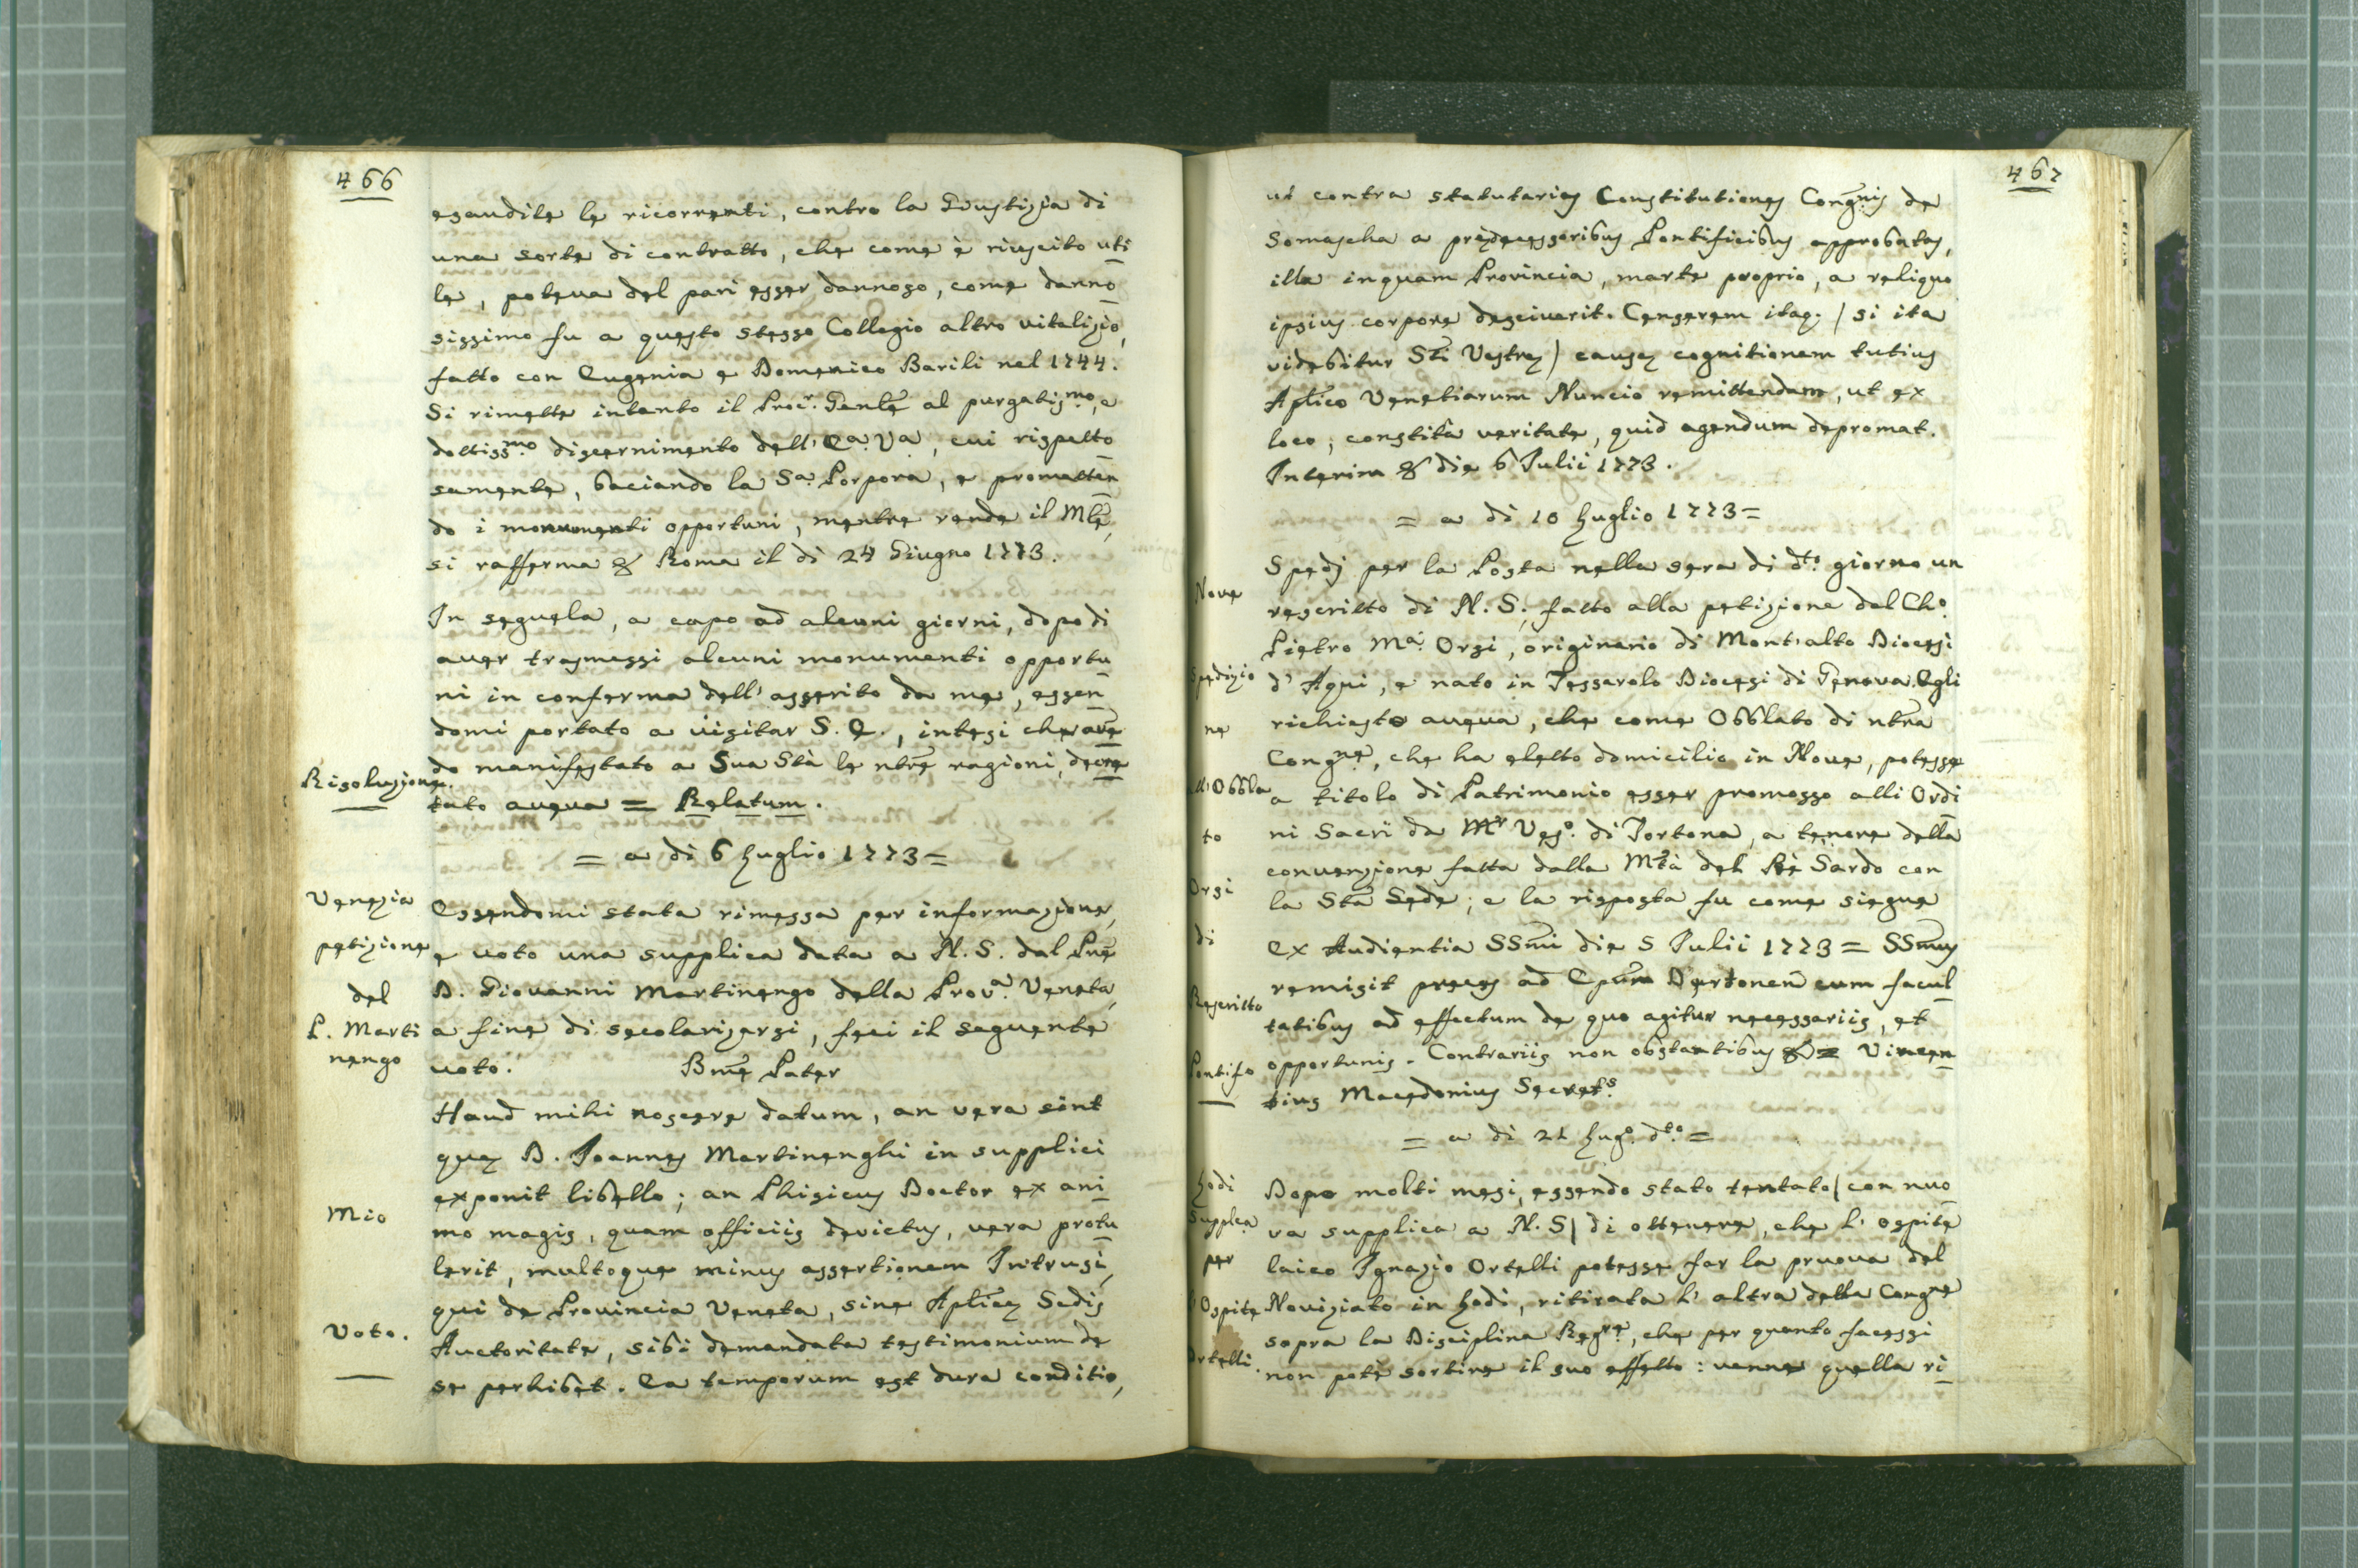 466
esaudite le ricorrenti, contro la Giustizia di
una sorte di contratto, che come è riuscito uti
le, poteva del pari esser dannoso, come danno
sissimo fu a questo stesso Collegio altro vitalizio,
fatto con Eugenia e Domenico Barili nel 1744.
Si rimette intanto il Procr. Genle al purgatismo, e
dottissmo discernimento dell' Ea. Va, cui rispetto
samente, baciando la Sa. Porpora, e prometten
do i monumenti opportuni, mentre rende il Mte,
si rafferma & Roma il dì 24 Giugno 1773.
In seguela, a capo ad alcuni giorni, dopo di
aver trasmessi alcuni monumenti opportu
ni in conferma dell' asserito da me, essen
domi portato a visitar S. E., intesi che aven
do manifestato a Sua Stà le ntre ragioni, decre
tato aveva = Relatum.
Risoluzione.
= a dì 6 Luglio 1773 =
Venezia
petizione
del
P. Marti
nengo
Essendomi stata rimessa per informazione,
e voto una supplica data a N. S. dal Pre
D. Giovanni Martinengo della Prova. Veneta,
a fine di secolarizarsi, feci il seguente
voto. Bme Pater
Haud mihi noscere datum, an vera sint
quæ D. Joannes Martinenghi in supplici
exponit libello; an Phisicus Doctor ex ani
mo magis, quam officiis devictus, vera protu
lerit, multoque minus assertionem Intrusi,
qui de Provincia Veneta, sine Aplicæ Sedis
Auctoritate, sibi demandata testimonium de
se perhibet. Ea temporum est dura conditio,
Mio
Voto.
467
ut contra statutarias Constitutiones Congnis de
Somascha a prædecessoribus Pontificibus approbatas,
illa inquam Provincia, marte proprio, a reliquo
ipsius corpore desciverit. Censerem itaq. / si ita
videbitur Sti Vestræ / causæ cognitionem tutius
Aplico Venetiarum Nuncio remittendam, ut ex
loco, constitâ veritate, quid agendum depromat.
Interim & die 6 Julii 1773.
= a dì 10 Luglio 1773 =
Nove
Spedizio
ne
all' Obbla
to
Orsi
di
Rescritto
Pontifo
Spedj per la Posta nella sera di dto. giorno un
rescritto di N. S., fatto alla petizione del Cho.
Pietro Ma. Orsi, originario di Mont'alto Diocesi
d' Aqui, e nato in Tessarolo Diocesi di Genova. Egli
richiesto aveva, che come Obblato di ntra
Congne, che ha eletto domicilio in Nove, potesse
a titolo di Patrimonio esser promosso alli Ordi
ni Sacri da Mr Veso. di Tortona, a tenore della
convenzione fatta dalla Mtà del Rè Sardo con
la Sta Sede; e la risposta fu come siegue
Ex Audientia SSmi die 5 Julii 1773 = SSmus
remisit preces ad Epum Dertonen cum facul
tatibus ad effectum de quo agitur necessariis, et
opportunis. Contrariis non obstantibus & = Vincen
tius Macedonius Secrets.
= a dì 21 Lugo. dto. =
Lodi
Supplca
per
l' Ospite
Ortelli.
Dopo molti mesi, essendo stato tentato / con nuo
va supplica a N. S / di ottenere, che l' ospite
laico Ignazio Ortelli potesse far la pruova del
Noviziato in Lodi, ritirata l' altra della Congne
sopra la Disciplina Regre, che per quanto facessi
non potè sortire il suo effetto: venne quella ri